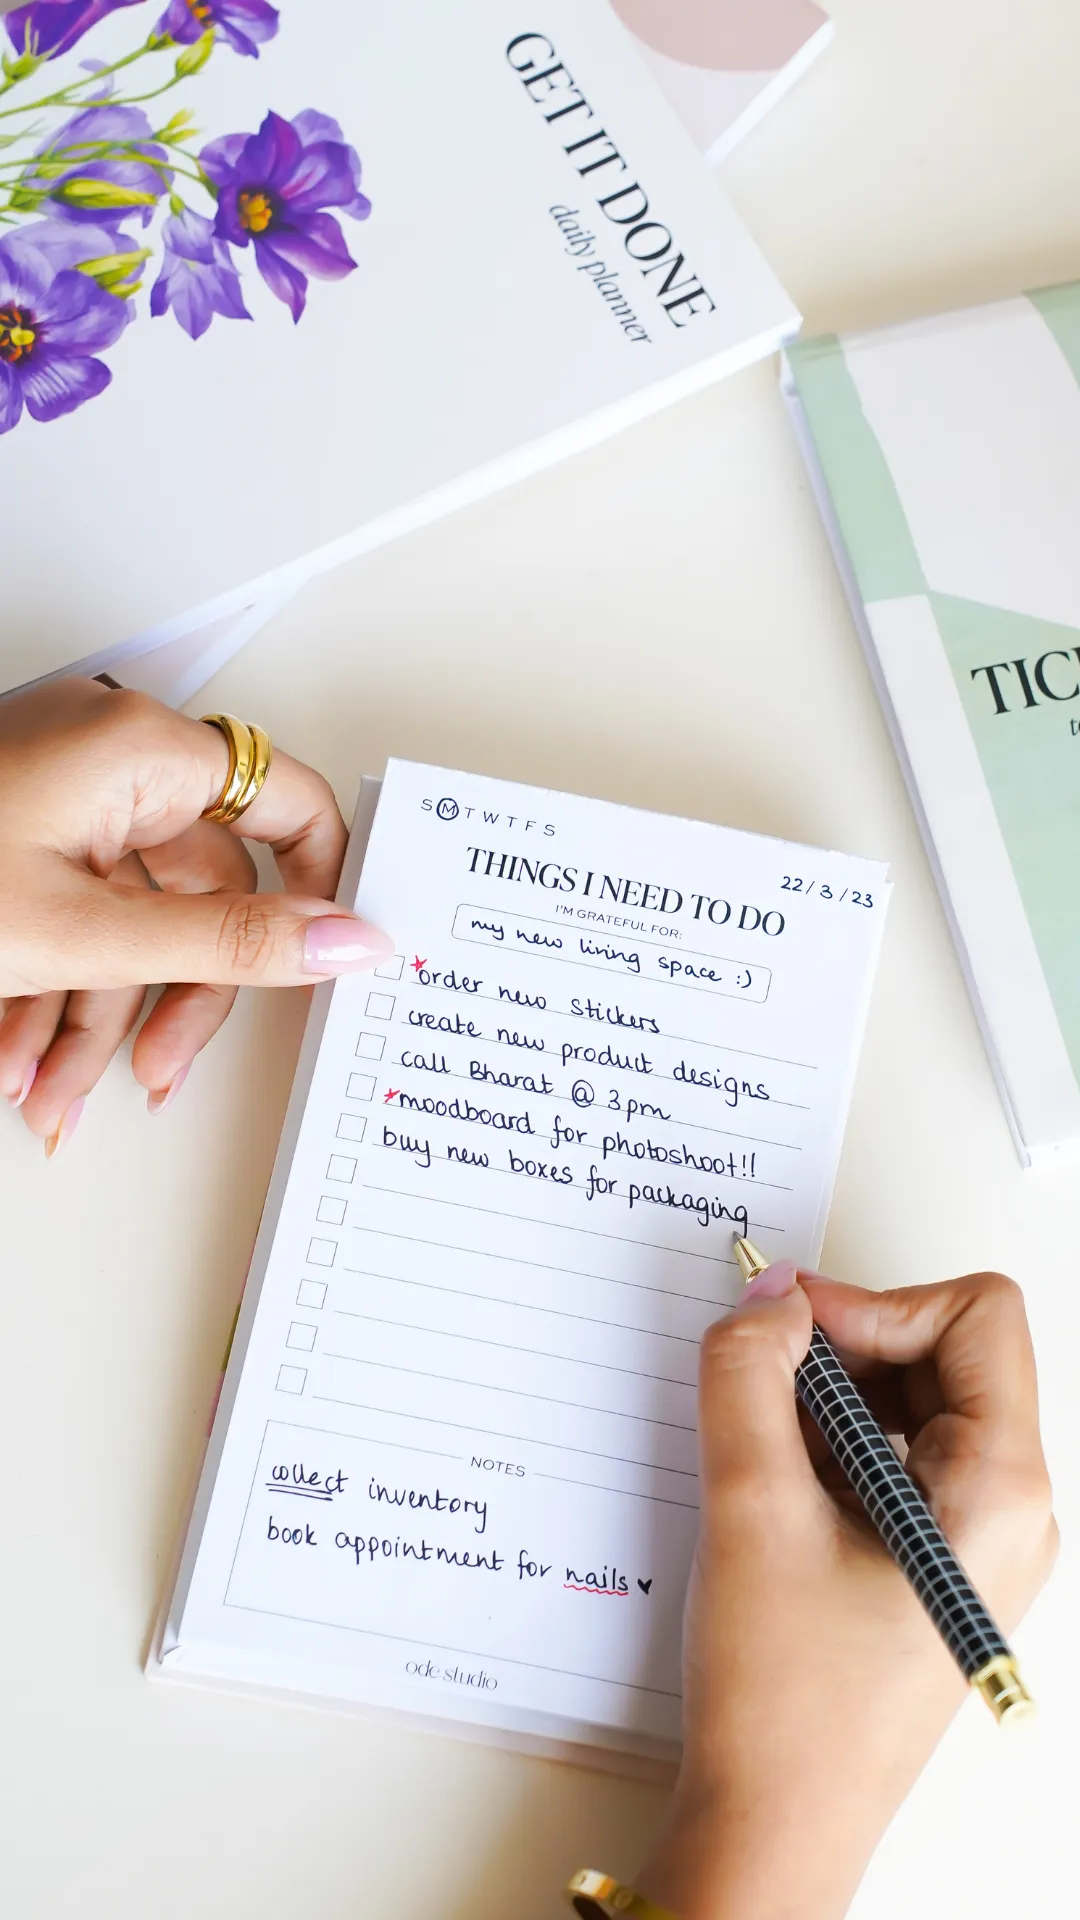 GET IT DONE
daily planner
TIC
S M T W T F S
22/3/23
THINGS I NEED TO DO
I'M GRATEFUL FOR:
my new living space :)
*order new stickers
create new product designs
call Bharat @ 3pm
*moodboard for photoshoot!!
buy new boxes for packaging
NOTES
collect inventory
book appointment for nails ♥
ode studio